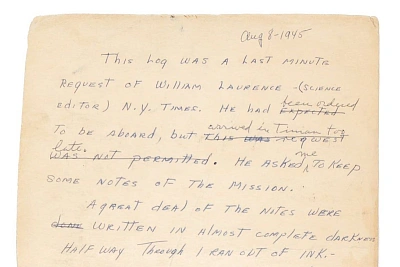 Aug 8-1945
THIS LOG WAS A LAST MINUTE
REQUEST OF WILLIAM LAURENCE -(SCIENCE
EDITOR) N.Y. TIMES. HE HAD been ordered EXPECTED
TO BE ABOARD, BUT arrived in Tinian too THIS WAS REQUEST
late.
WAS NOT PERMITTED. HE ASKED me TO KEEP
SOME NOTES OF THE MISSION.
A GREAT DEAL OF THE NOTES WERE
DONE WRITTEN IN ALMOST COMPLETE DARKNESS
HALF WAY THROUGH I RAN OUT OF INK.-